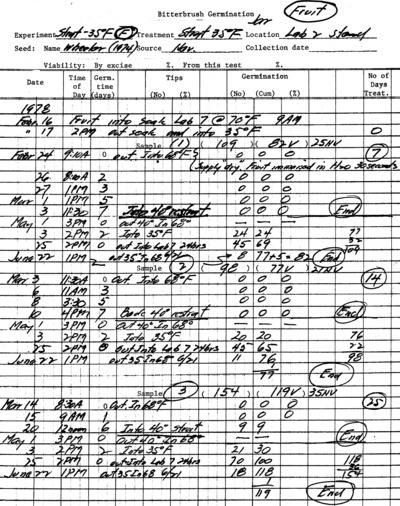 Bitterbrush Germination for Fruit
Experiment Start-35°F (F) Treatment Start 35°F Location Lab 2 stand
Seed: Name Wheeler (1974) Source Nev. Collection date
Viability: By excise %. From this test %.
Date Time of Day Germ. time (days) Tips (No) (%) Germination (No) (Cum) (%) No of Days Treat.
1978
Feb. 16 Fruit into soak Lab 7 @ 70°F 9AM
" 17 2PM out soak and into 35°F 0
Sample (1) (109) (82V) 25NV
Feb 24 9:10A 0 out Into 68°F 0 0 0 7
(Supply dry. Fruit immersed in H2O 30 seconds)
26 8:10A 2 0 0 0
27 1PM 3 0 0 0
Mar 1 1PM 5 0 0 0
3 11:30 7 Into 40° restrat 0 0 0 End
May 1 3PM 0 out 40° In 68° — —
3 2PM 2 Into 35°F 24 24 77
25 2PM 0 out Into Lab 7 24hrs 45 69 32
June 22 1PM 2 out 35 In 68 6/21 8 77+5=82 End 109
Sample (2) (98) (77V) 21NV
Mar 3 11:30A 0 out Into 68°F 0 0 0 14
6 11AM 3 0 0 0
8 3:30 5 0 0 0
10 4PM 7 Back 40° restrat 0 0 0 End
May 1 3PM 0 out 40° In 68° — —
3 2PM 2 Into 35°F 20 20 76
25 2PM 0 out Into Lab 7 24hrs 45 65 22
June 22 1PM out 35 In 68 6/21 11 76 98
1
77 End
Sample (3) (154) (119V) 35NV
Mar 14 8:30A 0 Out. In 68°F 0 0 0 25
15 9AM 1 0 0 0
20 12noon 6 Into 40° strat 9 9
May 1 3PM 0 Out 40° In 68° — — End
3 2PM 2 Into 35°F 21 30
25 2PM 0 out-Into Lab 7 24hrs 70 100 118
June 22 1PM out 35 In 68 6/21 18 118 36
1 154
119 End